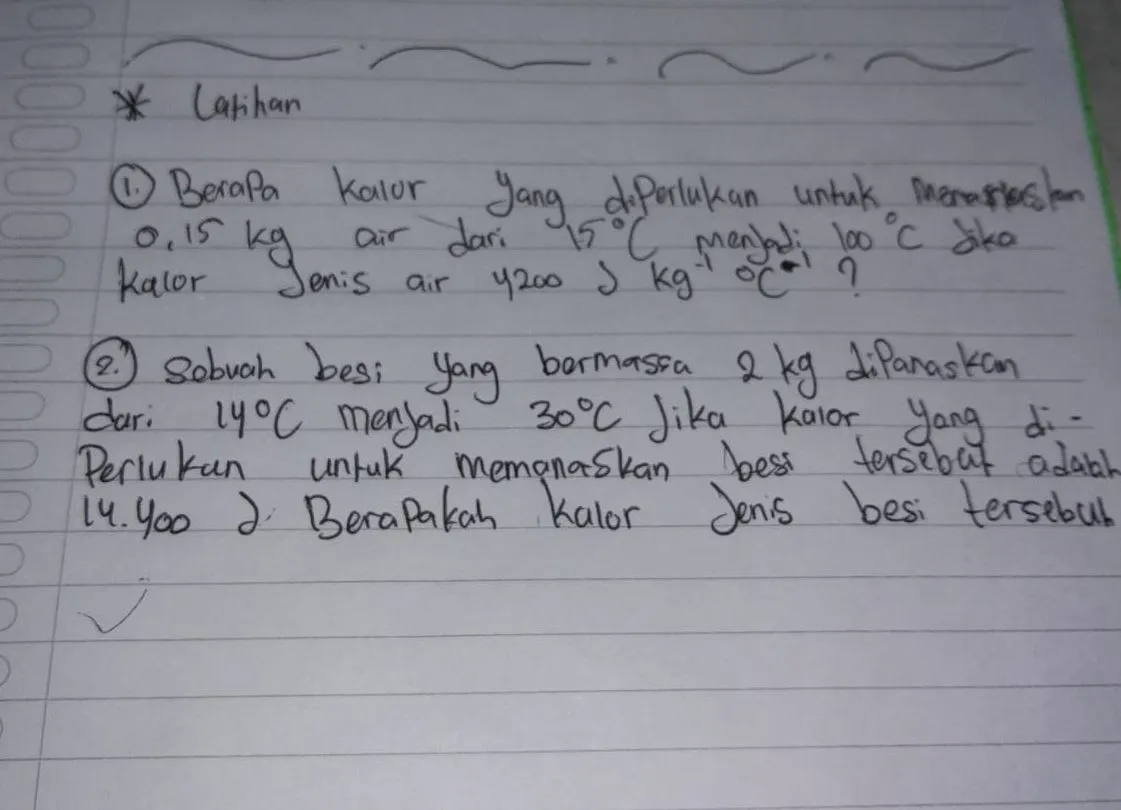 * Latihan
1. Berapa kalor yang diperlukan untuk
0,15 kg air dari 15°C menjadi 100°C Jika
kalor Jenis air 4200 J kg⁻¹ °C⁻¹ ?
2. Sebuah besi yang bermassa 2 kg dipanaskan
dari 14°C menjadi 30°C Jika kalor yang di-
Perlukan untuk memanaskan besi tersebut adalah
14.400 J. Berapakah kalor Jenis besi tersebut